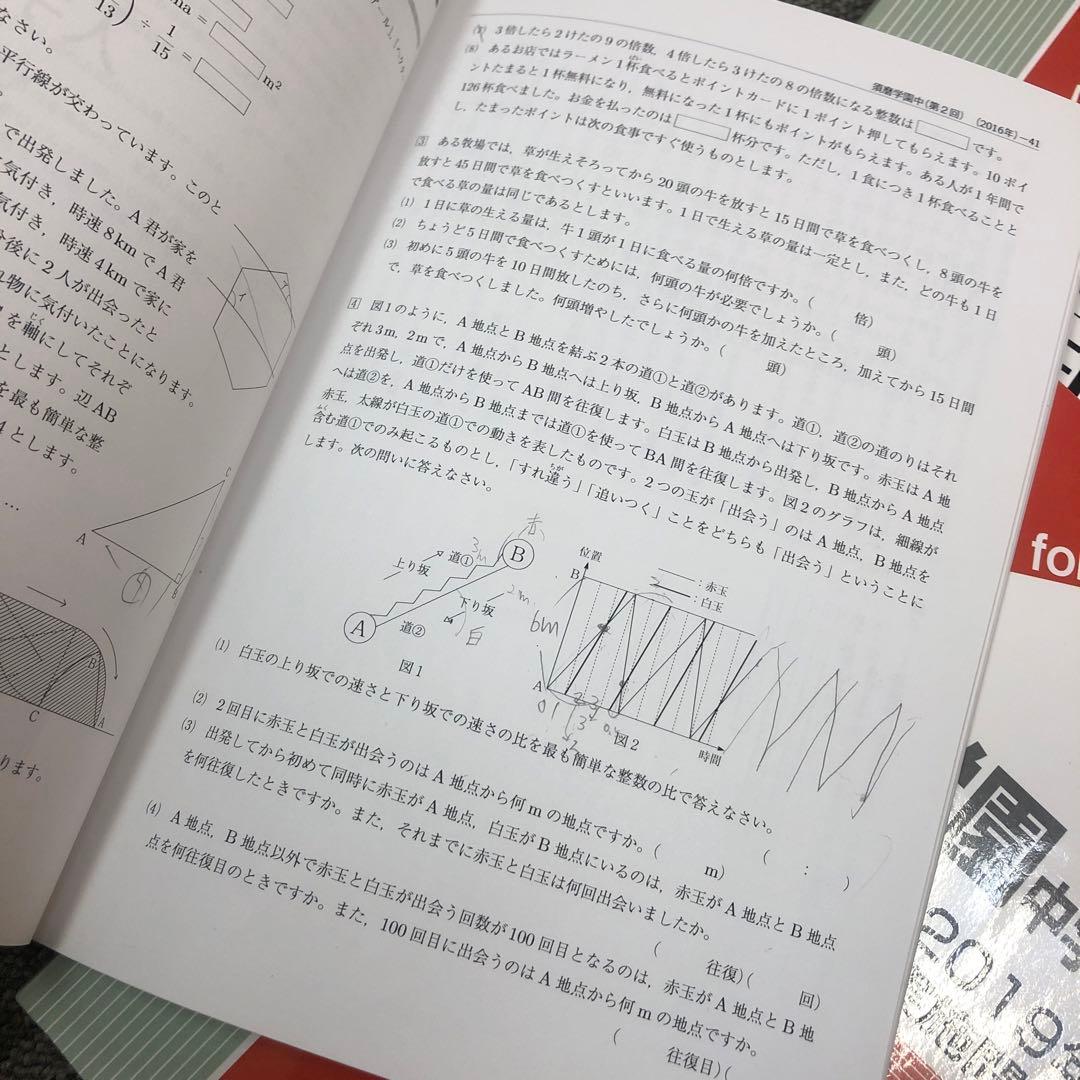 13) ÷ 1/15 =
m²
なさい。
平行線が交わっています。このと
で出発しました。A 君が家を
に気付き，時速 8 km で A 君
気付き，時速 4 km で家に
分後に 2 人が出会ったと
れ物に気付いたことになります。
を軸にしてそれぞ
とします。辺 AB
を最も簡単な整
4 とします。
…
イ
C
A
B
B
C
A
ります。
須磨学園中(第2回) (2016年)—41
(7) 3倍したら2けたの9の倍数，4倍したら3けたの8の倍数になる整数は
です。
(8) あるお店ではラーメン1杯食べるとポイントカードに1ポイント押してもらえます。10ポイ
ントたまると1杯無料になり，無料になった1杯にもポイントがもらえます。ある人が1年間で
126杯食べました。お金を払ったのは 杯分です。ただし，1食につき1杯食べることと
し，たまったポイントは次の食事ですぐ使うものとします。
3 ある牧場では，草が生えそろってから20頭の牛を放すと15日間で草を食べつくし，8頭の牛を
放すと45日間で草を食べつくすといいます。1日で生える草の量は一定とし，また，どの牛も1日
で食べる草の量は同じであるとします。
(1) 1日に草の生える量は，牛1頭が1日に食べる量の何倍ですか。( 倍)
(2) ちょうど5日間で食べつくすためには，何頭の牛が必要でしょうか。( 頭)
(3) 初めに5頭の牛を10日間放したのち，さらに何頭かの牛を加えたところ，加えてから15日間
で，草を食べつくしました。何頭増やしたでしょうか。( 頭)
4 図1のように，A地点とB地点を結ぶ2本の道①と道②があります。道①，道②の道のりはそれ
ぞれ3m，2mで，A地点からB地点へは上り坂，B地点からA地点へは下り坂です。赤玉はA地
点を出発し，道①だけを使ってAB間を往復します。白玉はB地点から出発し，B地点からA地点
へは道②を，A地点からB地点までは道①を使ってBA間を往復します。図2のグラフは，細線が
赤玉，太線が白玉の道①での動きを表したものです。2つの玉が「出会う」のはA地点，B地点を
含む道①でのみ起こるものとし，「すれ違う」「追いつく」ことをどちらも「出会う」ということに
します。次の問いに答えなさい。
赤
3m
B
道①
上り坂
下り坂
2m
白
A
道②
図1
位置
B
：赤玉
：白玉
6m
A
0 1
時間
図2
(1) 白玉の上り坂での速さと下り坂での速さの比を最も簡単な整数の比で答えなさい。
( ： )
(2) 2回目に赤玉と白玉が出会うのはA地点から何mの地点ですか。( m)
(3) 出発してから初めて同時に赤玉がA地点，白玉がB地点にいるのは，赤玉がA地点とB地点
を何往復したときですか。また，それまでに赤玉と白玉は何回出会いましたか。
( 往復)( 回)
(4) A地点，B地点以外で赤玉と白玉が出会う回数が100回目となるのは，赤玉がA地点とB地
点を何往復目のときですか。また，100回目に出会うのはA地点から何mの地点ですか。
( 往復目)(
for
園中
2019